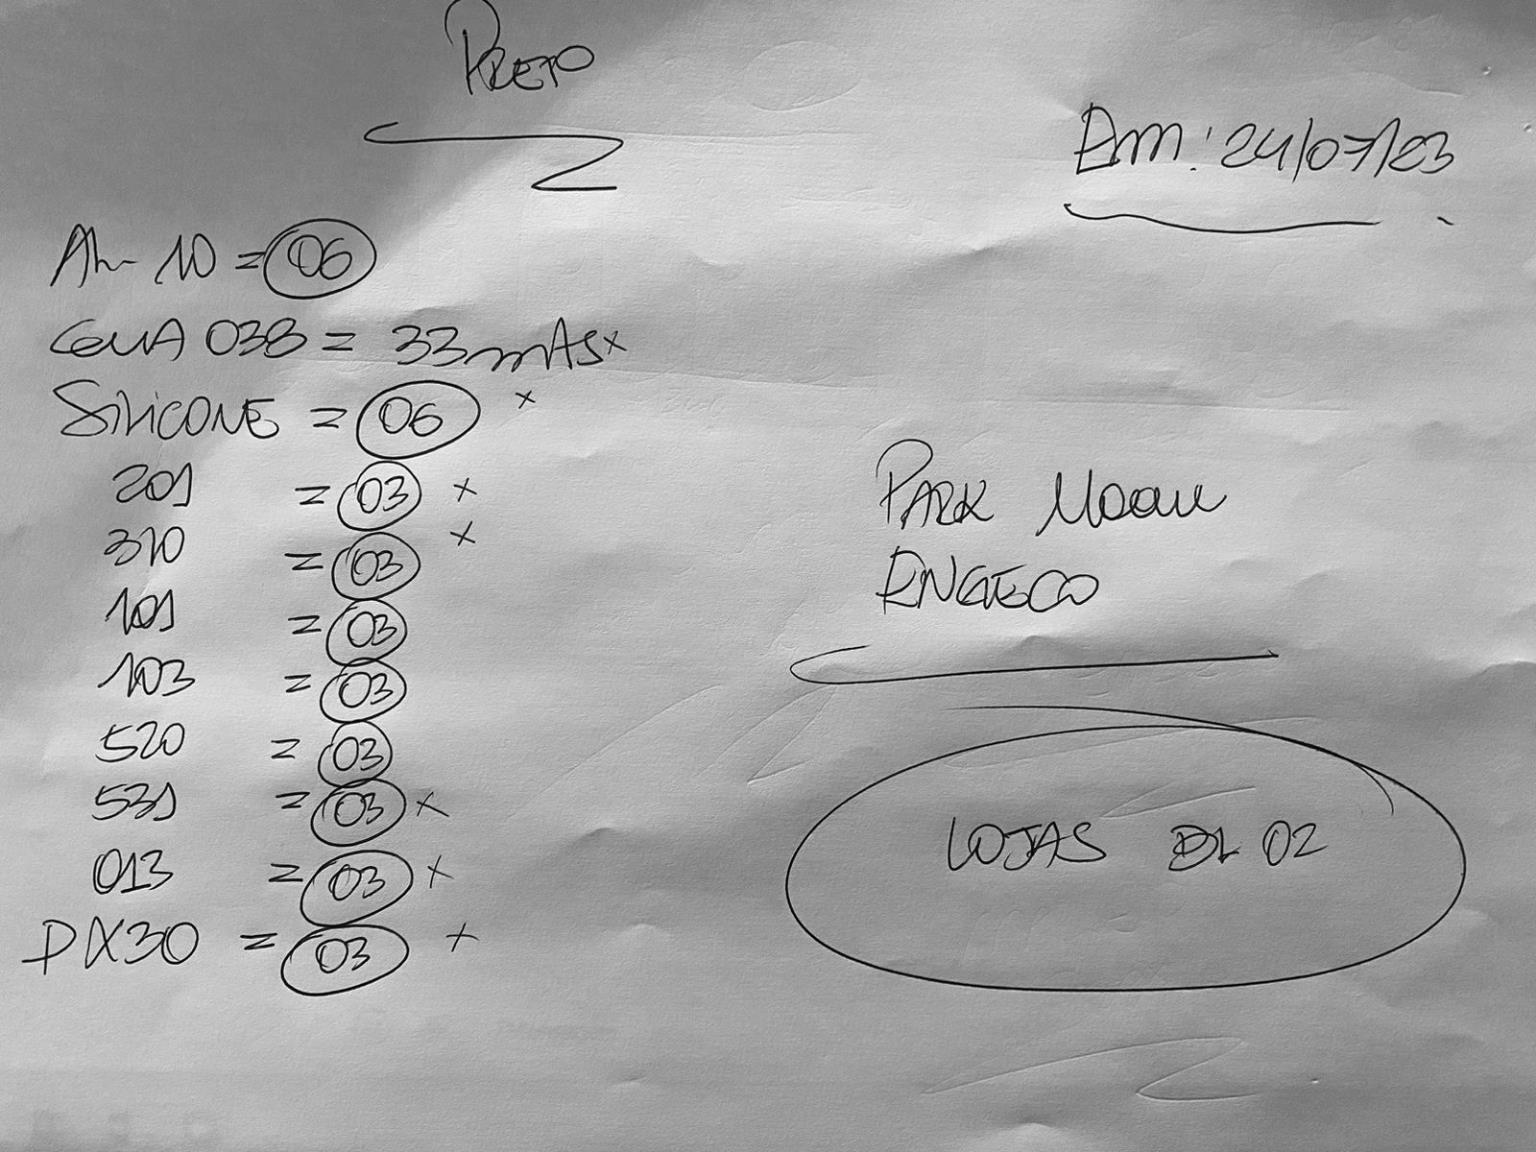 PRETO
Em: 24/07/23
AL-10 = 06
GUIA 038 = 33 mAs x
SILICONE = 06 x
201 = 03 x
310 = 03 x
101 = 03
103 = 03
520 = 03
531 = 03 x
013 = 03 x
DX30 = 03 x
PARK
ENGECO
LOJAS BL 02